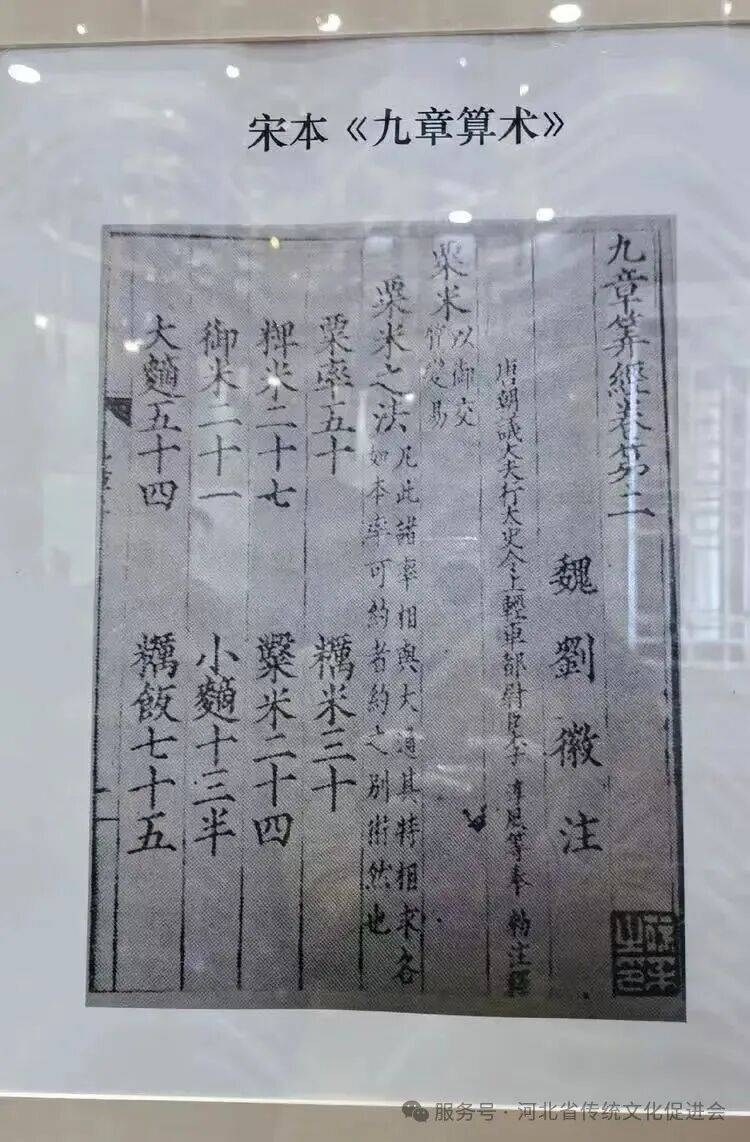 宋本《九章算术》
九章筭經卷第二
魏劉徽注
唐朝議大夫行太史令上輕車都尉臣李淳風等奉 勑注釋
粟米以御交質變易
粟米之法凡此諸率相與大通其特相求各如本率可約者約之別術然也
粟率五十 糲米三十
粺米二十七 糳米二十四
御米二十一 小䵂十三半
大䵂五十四 糲飯七十五
服务号·河北省传统文化促进会